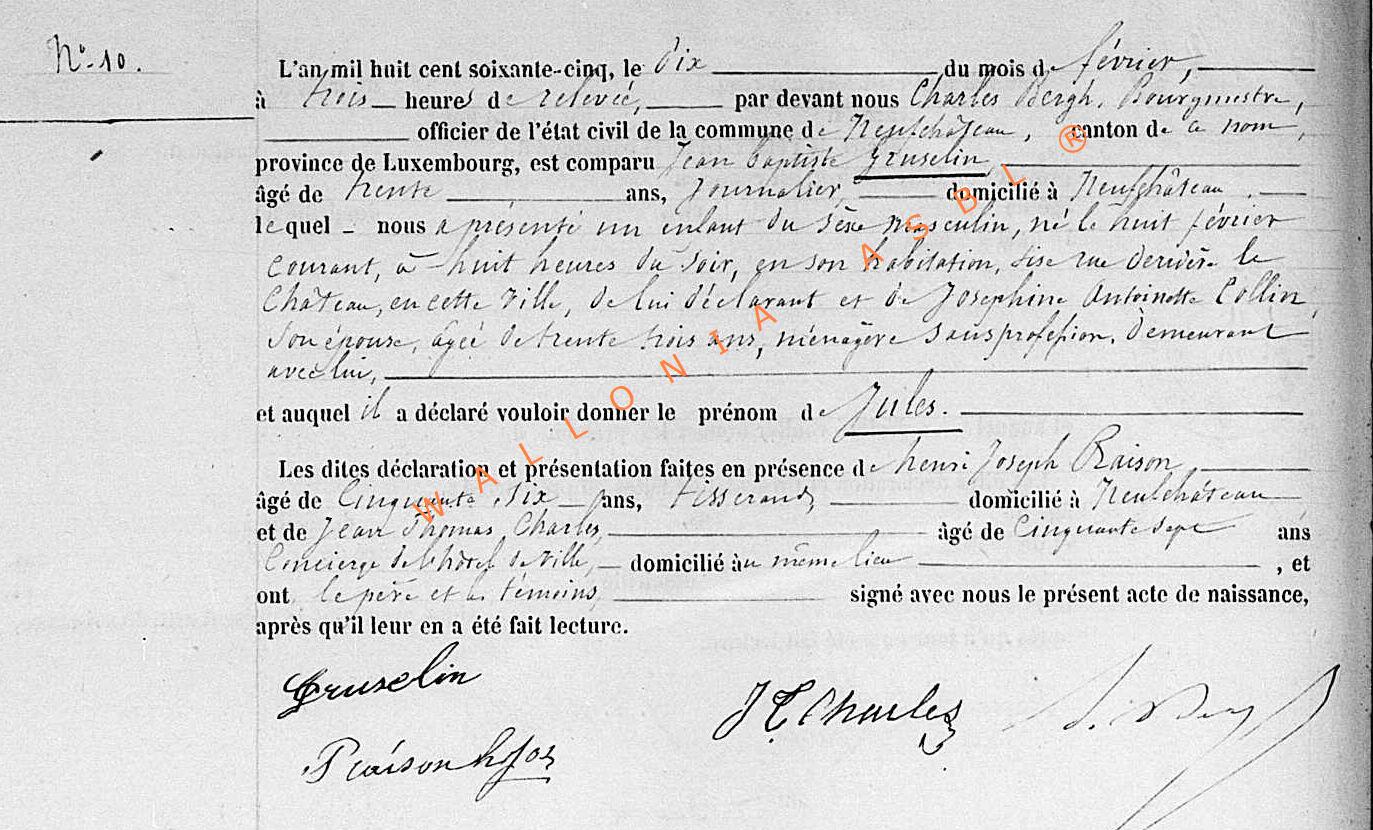 No 10.
L'an mil huit cent soixante-cinq, le dix du mois de février,
à trois heures de relevée, par devant nous Charles Bergh, Bourgmestre,
officier de l'état civil de la commune de Neufchâteau, canton de ce nom,
province de Luxembourg, est comparu Jean Baptiste Gruselin,
âgé de trente ans, Journalier, domicilié à Neufchâteau,
lequel nous a présenté un enfant du sexe masculin, né le huit février
courant, à huit heures du soir, en son habitation, sise rue derière le
Château, en cette ville, de lui déclarant et de Josephine Antoinette Collin,
son épouse, agée de trente trois ans, ménagère sans profession, demeurant
avec lui,
et auquel il a déclaré vouloir donner le prénom de Jules.
Les dites déclaration et présentation faites en présence de henri Joseph Raison,
âgé de Cinquante six ans, tisserand, domicilié à Neufchâteau
et de Jean Thomas Charles, âgé de Cinquante sept ans
Concierge de l'hôtel de Ville, domicilié au même lieu, et
ont le père et les témoins, signé avec nous le présent acte de naissance,
après qu'il leur en a été fait lecture.
Gruselin
J T Charles
Raison h Jos
WALLONIA ASBL ®